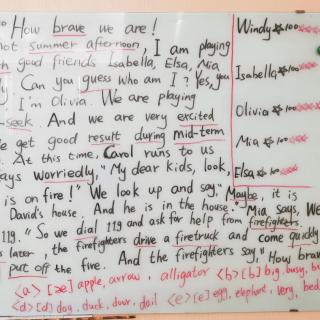 How brave we are!
not summer afternoon, I am playing
good friends Isabella, Elsa, Mia
Can you guess who am I? Yes, you
I'm Olivia. We are playing
-seek. And we are very excited
get good result during mid-term
. At this time, Carol runs to us
says worriedly, "My dear kids, look,
is on fire!" We look up and say, "Maybe, it is
David's house. And he is in the house." Mia says, We
119. "So we dial 119 and ask for help from firefighters.
later, the firefighters drive a firetruck and come quickly
put off the fire. And the firefighters say "How brave
<a> [æ] apple, arrow, alligator <b> [b] big, busy,
<d> [d] dog, duck, door, doll <e> [e] egg, elephant, very, bed
Windy 100
Isabella 100
Olivia 100
Mia 100
Elsa 100